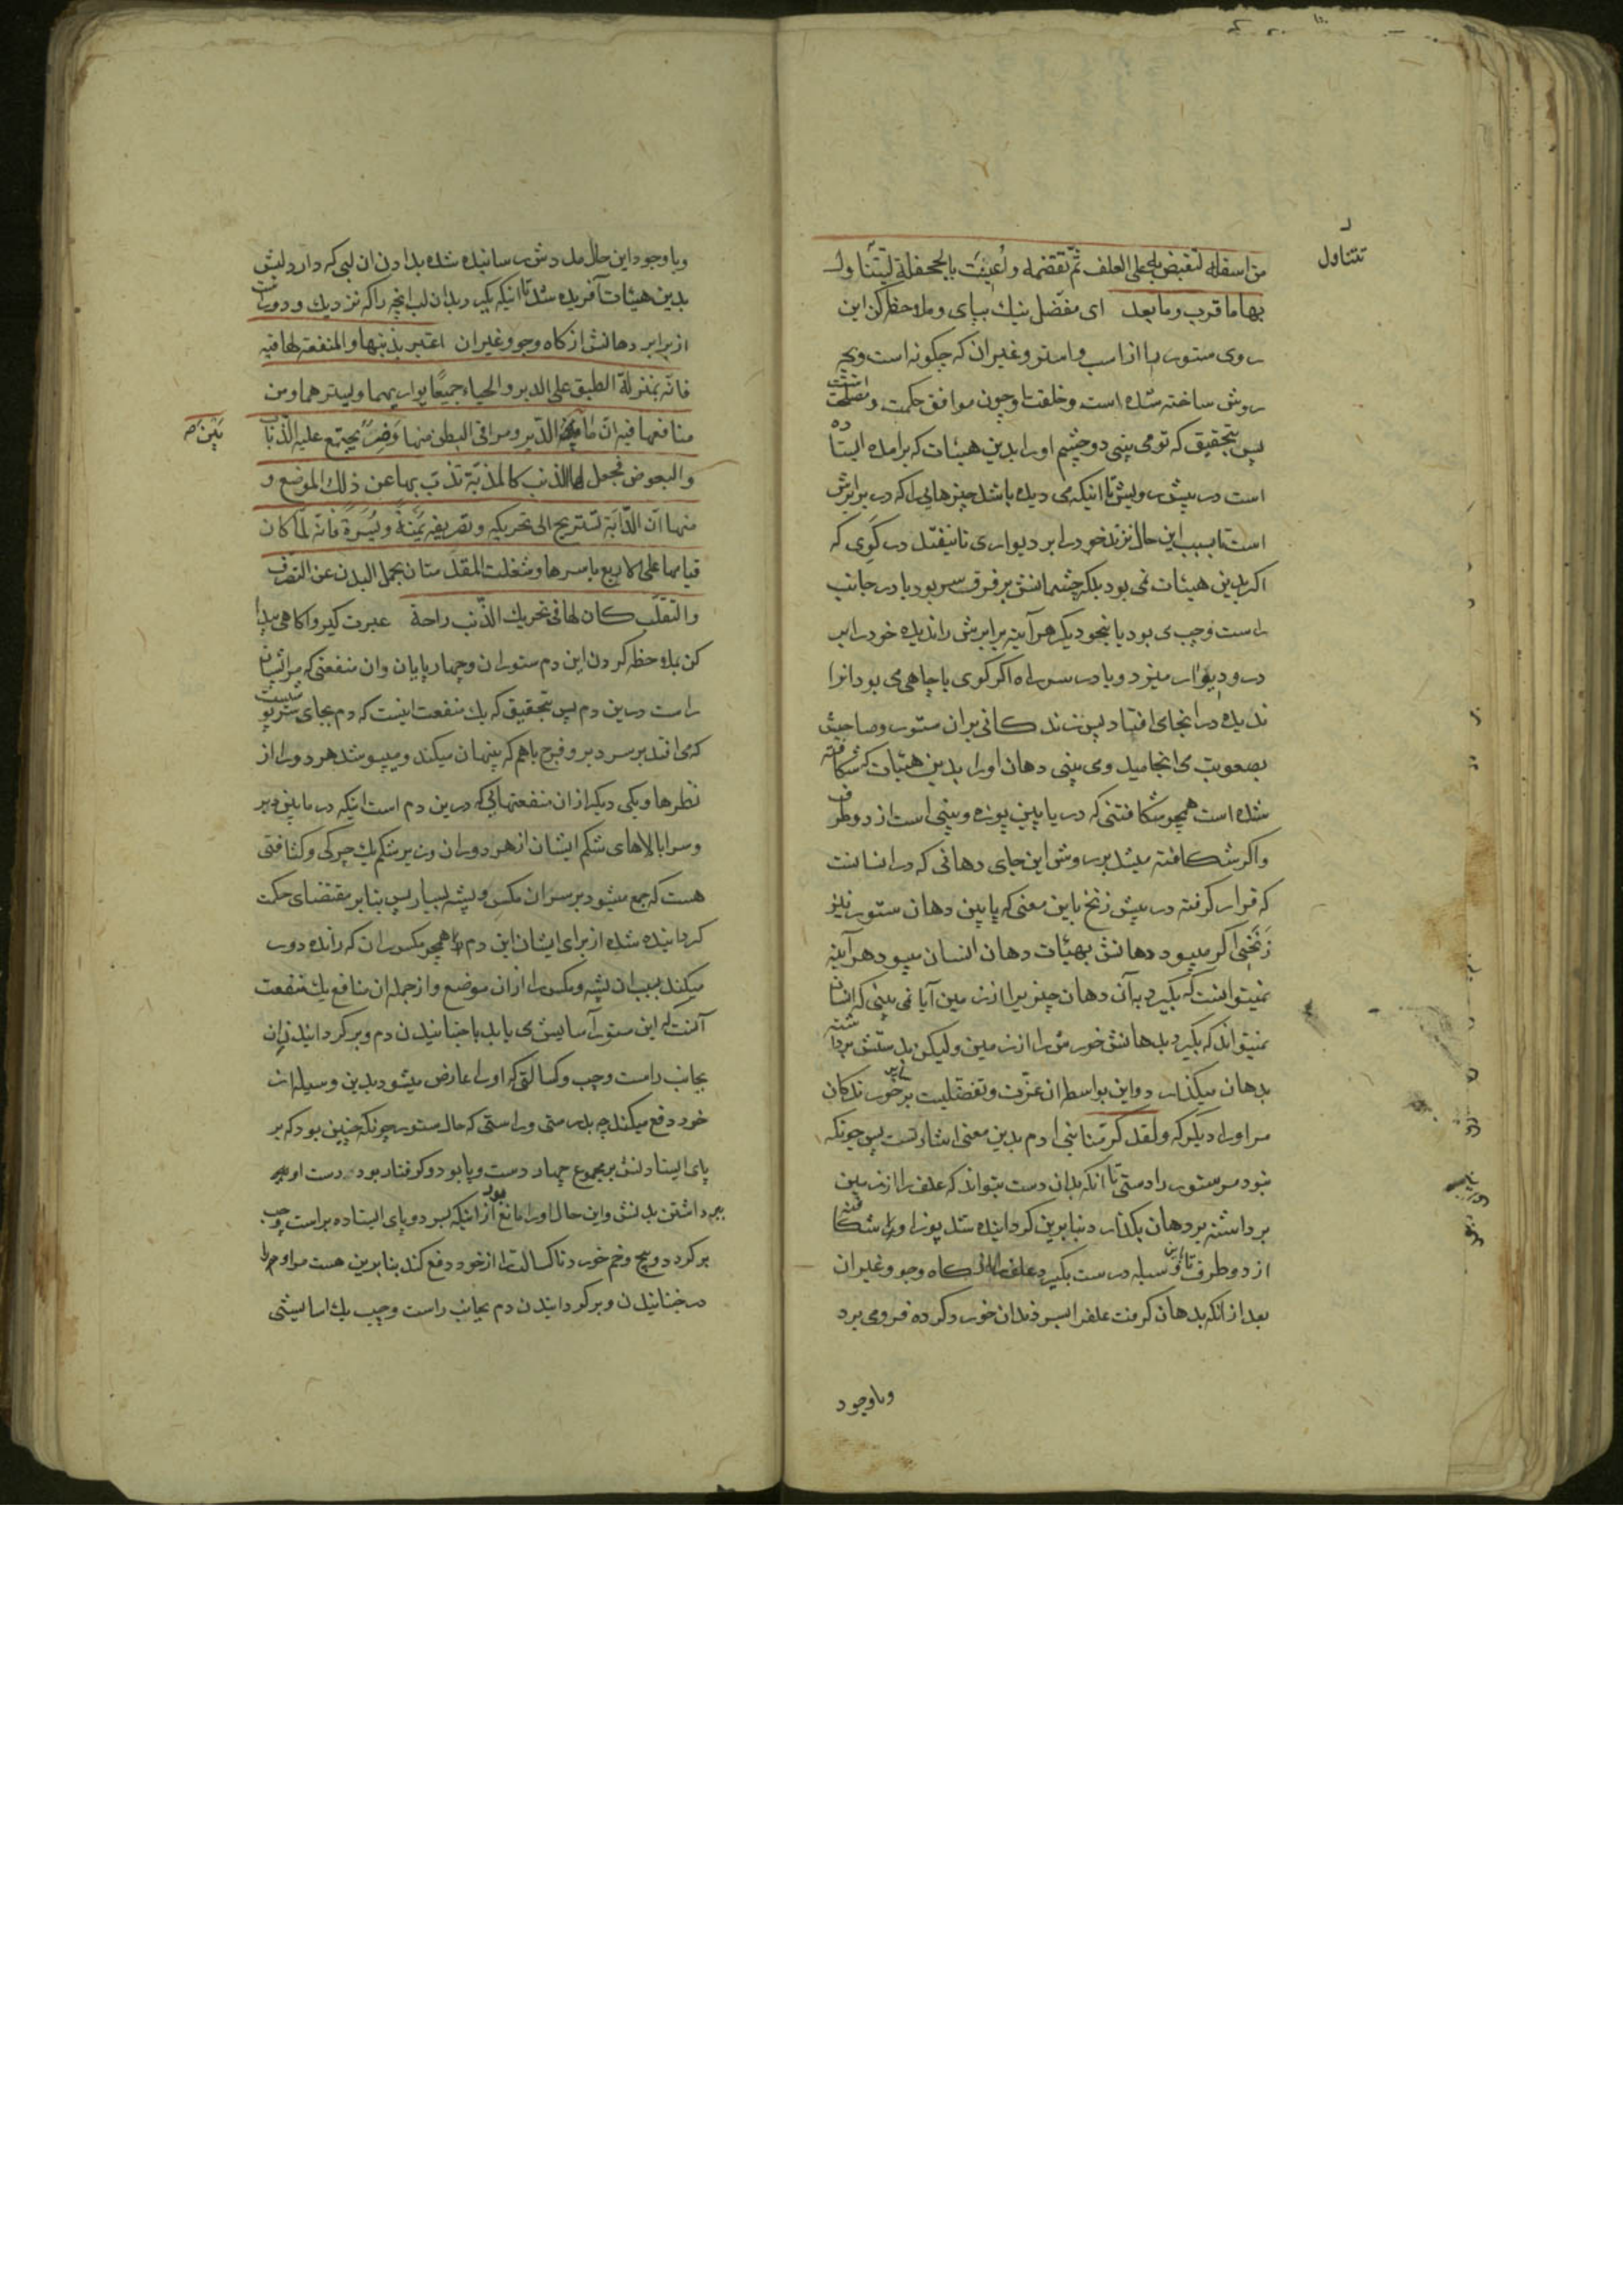 من اسفله لتقبض به على العلف ثم تقضمه واعينت بالجحفلة ليتناول
تتناول
بها ما قرب وما بعد ای مفضل نیك بپای وملاحظه كن این
روی ستور را از اسب و استر و غیر ان که چکونه است وبچه
روش ساخته شده است و خلقت او چون موافق حکمت و مصلحت است
پس بتحقیق که تو می بینی دو چشم او را بدین هیئات که بر امده ایستاده
است در پیش رویش تا اینکه می دیده باشد چیزهایی را که در برابرش
است تا بسبب این حال نزند خود را بر دیواری تا نیفتد در کوی که
اکر بدین هیئات نمی بود بلکه چشمانش بر فرق سر بود یا در جانب
راست و چپ می بود یا بنحو دیکر هر آینه برابرش را ندیده خود را بر
در و دیوار میزد و یا در سر راه اکر کوی یا چاهی می بود انرا
ندیده در انجا می افتاد پس زندکانی بر ان ستور و صاحبش
بصعوبت می انجامید و می بینی دهان او را بدین هیئات که شکافته
شده است همچو شکافتنی که در پایین پوزه و بینی است از دو طرف
واکر شکافته میشد بر روش این جای دهانی که در انسانست
که قرار کرفته در پیش زنخ باین معنی که پایین دهان ستور نیز
زنخی اکر میبود دهانش بهیئات دهان انسان میبود هر آینه
نمیتوانست که بکیرد به آن دهان چیزیرا از زمین آیا نمی بینی که انسان
نمیتواند که بکیرد بدهانش خورش را از زمین ولیکن بدستش برداشته
بدهان میکذارد و این بواسطه ان عزت و تفضلیست بر خورندکان
مر او را دیکر که ولقد کرمنا بنی ادم بدین معنی اشارتست پس چونکه
نبود مر ستور را دستی تا انکه بدان دست بتواند که علف را از زمین
برداشته بر دهان بکذارد بنابرین کردانیده شد پوز او را شکافته
از دو طرف تا باین وسیله درست بکیرد علف را از کاه وجو و غیر ان
بعد از انکه بدهان کرفت علف را بسر دندان خورد کرده فرو می برد
وباوجود
وباوجود این حال مددش رسانیده شده بدادن ان لبی که دارد لبش
بدین هیئات آفریده شد تا اینکه بکیرد بدان لب انچه را که نزدیك و دورست
از برابر دهانش از کاه وجو وغیر ان اعتبر بذنبها والمنفعة لها فیه
فانه بمنزلة الطبق علی الدبر والحیاء جمیعا یواریهما ویسترهما ومن
منافعها فیه ان ما الدبر ومراقی البطن منها وضرا یجتمع علیه الذباب
بین صح
والبعوض فجعل لها الذنب کالمذبة تذب بها عن ذلك الموضع و
منها ان الدابة تستریح الی تحریکه وتصریفه یمنة ویسرة فانه لما کان
قیامها علی الاربع باسرها وشغلت المقدمتان بحمل البدن عن التصرف
والتقلب کان لها فی تحریك الذنب راحة عبرت کیر و اکاهی پیدا
کن بملاحظه کردن این دم ستوران و چهارپایان وان منفعتی که مر ایشان
راست درین دم پس بتحقیق که یك منفعت اینست که دم بجای سرپوشیست
که می افتد بر سر دبر و فرج باهم که پنهان میکند و میپوشد هر دو را از
نظرها و یکی دیکر از ان منفعتهایی که درین دم است اینکه در مابین دبر
و سرابالاهای شکم ایشان از هر دو ران و زیر شکم یك چرکی و کثافتی
هست که جمع میشود بر سر ان مکس و پشه بسیار پس بنابر مقتضای حکمت
کردانیده شده از برای ایشان این دم را همچو مکس ران که رانده دور
میکند بسبب ان پشه و مکس را از ان موضع و از جمله ان منافع یك منفعت
آنست که این ستور آسایش می یابد با جنبانیدن دم و برکردانیدن ان
بجانب راست و چپ و کسالتی که او را عارض میشود بدین وسیله از
خود دفع میکند چه بدرستی و راستی که حال ستور چونکه چنین بود که بر
پای ایستادنش بر مجموع چهار دست و پا بود و کرفتار بود دست او ببر
داشتن بدنش و این حال او را مانع بود از اینکه بسر دو پای ایستاده براست و چپ
برکردد و پیچ و خم خورد تا کسالت را از خود دفع کند بنابرین هست مر او را
در جنبانیدن و برکردانیدن دم بجانب راست و چپ یك اسایشی